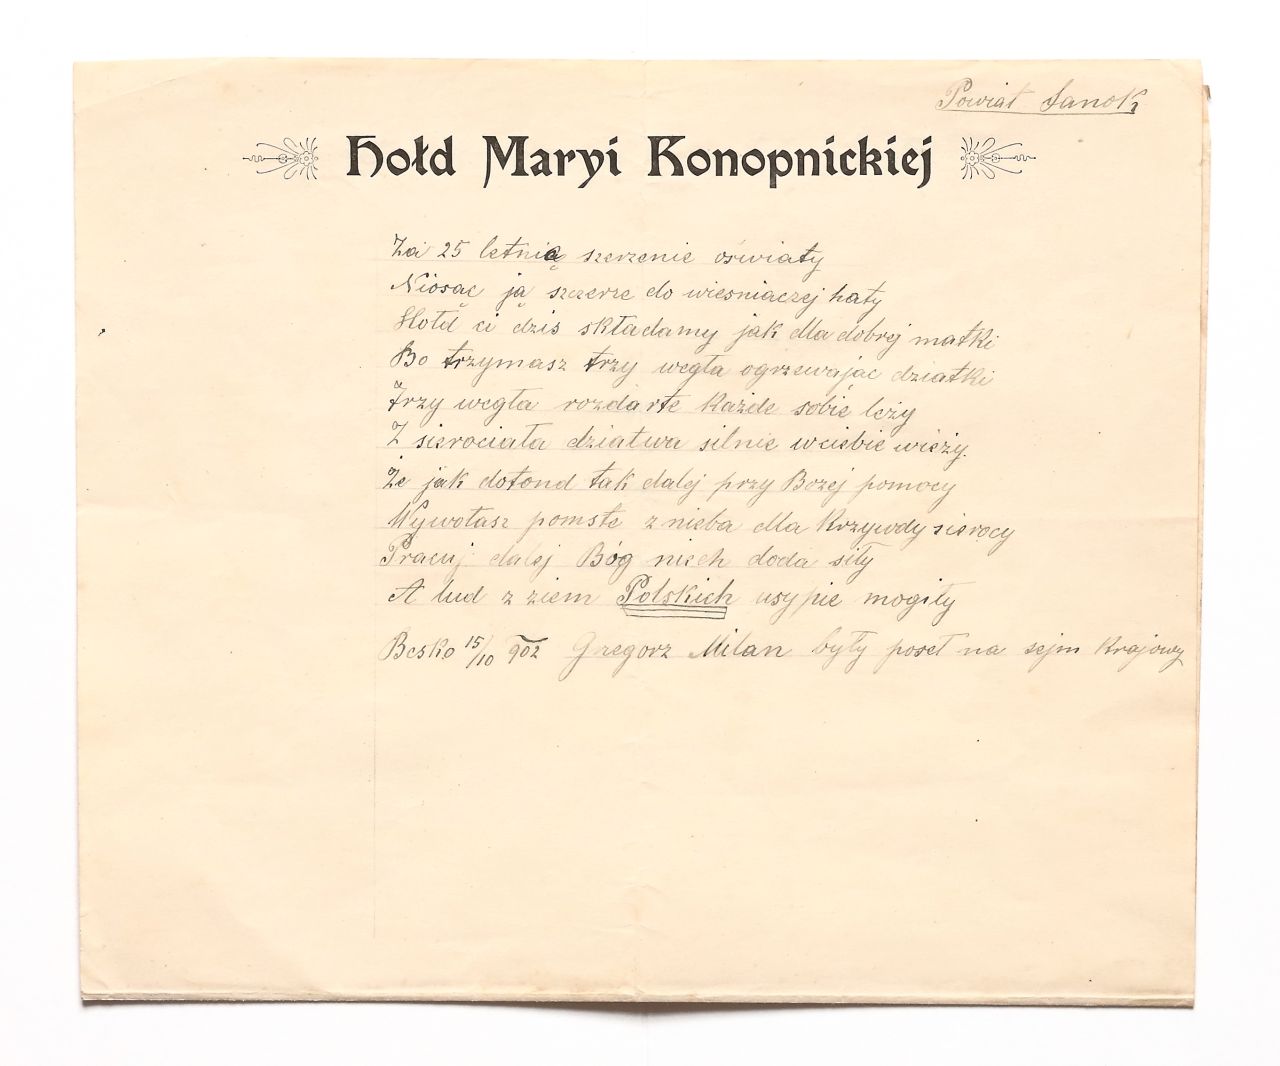 Powiat Sanok
Hołd Maryi Konopnickiej
Za 25 letnią szerzenie oświaty
Niosąc ją szczerze do wiesniaczej haty
Hołd ci dziś składamy jak dla dobrej matki
Bo trzymasz trzy węgła ogrzewając dziatki
Trzy węgła rozdarte każde sobie leży
Z sierociała dziatwa silnie wciebie wieży.
Że jak dotond tak dalej przy Bożej pomocy
Wywołasz pomste z nieba dla Krzywdy sierocy
Pracuj dalej Bóg niech doda siły
A lud z ziem Polskich usypie mogiły
Besko 15/10 902 Grzegorz Milan były poseł na sejm Krajowy